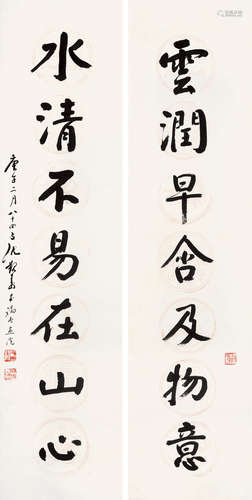 雲潤早含及物意
水清不易在山心
庚午二月八十四叟沈覲壽